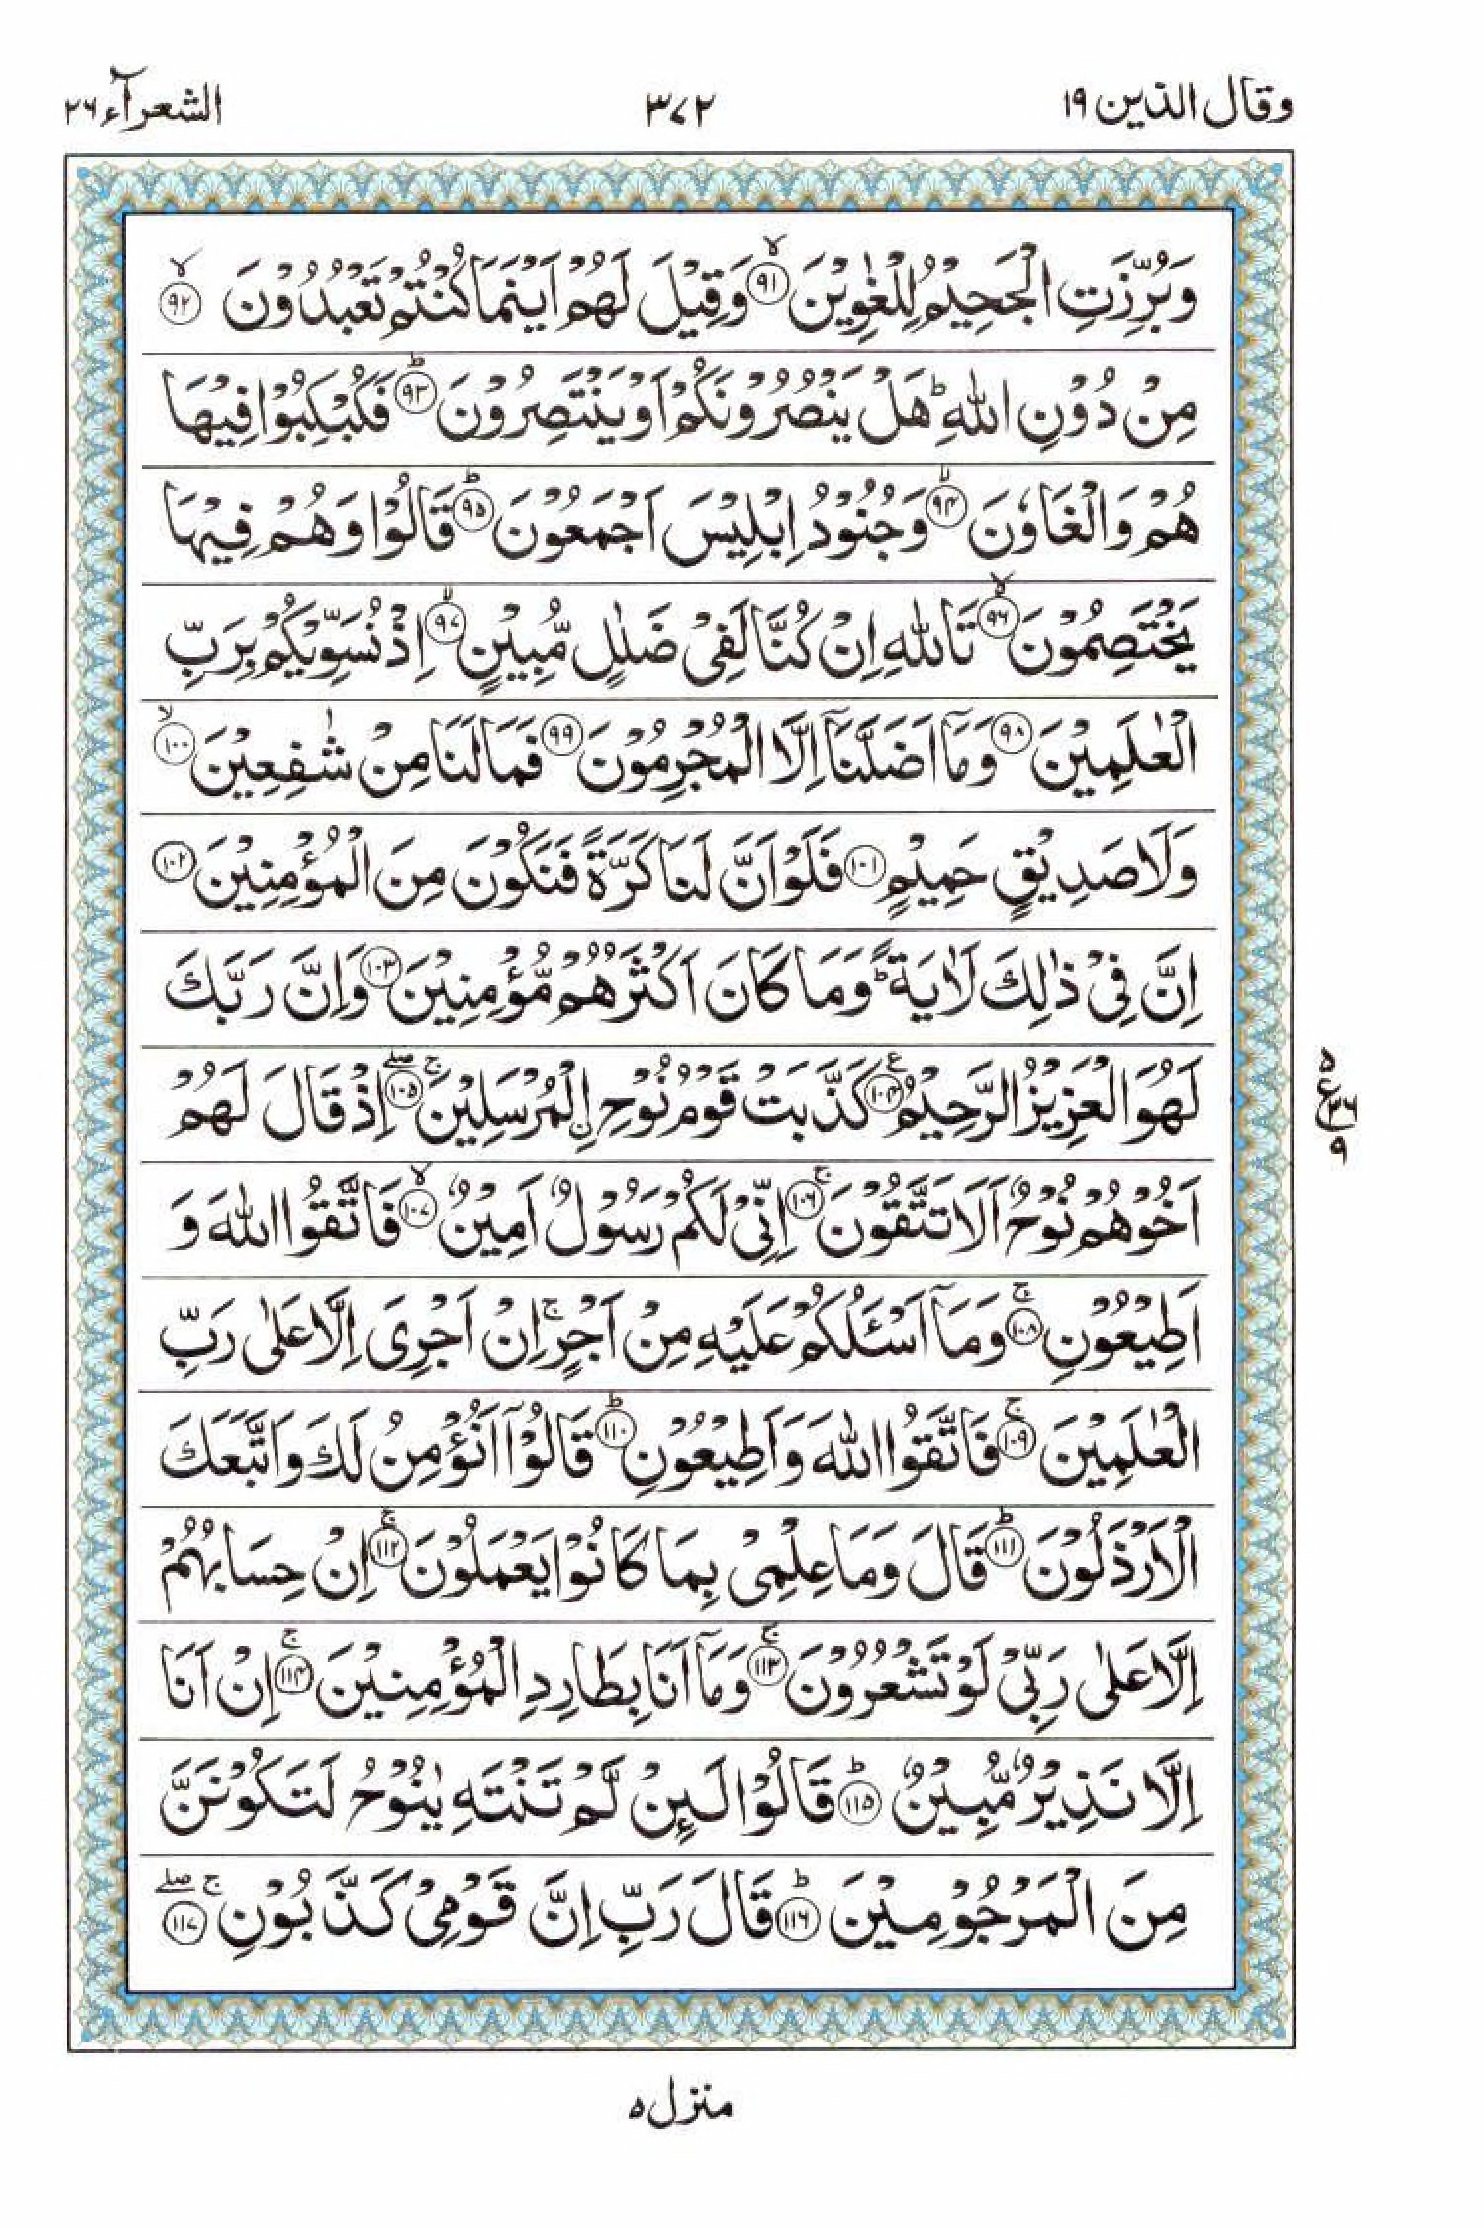 وقال الذين ١٩
٣٧٢
الشعرآء ٢٦
وَبُرِّزَتِ الْجَحِيْمُ لِلْغٰوِيْنَ ۙ‏﴿٩١﴾ وَقِيْلَ لَهُمْ اَيْنَمَا كُنْتُمْ تَعْبُدُوْنَ ۙ‏﴿٩٢﴾
مِنْ دُوْنِ اللّٰهِ ؕ هَلْ يَنْصُرُوْنَكُمْ اَوْ يَنْتَصِرُوْنَ ؕ‏﴿٩٣﴾ فَكُبْكِبُوْا فِيْهَا
هُمْ وَالْغَاوٗنَ ۙ‏﴿٩٤﴾ وَجُنُوْدُ اِبْلِيْسَ اَجْمَعُوْنَ ؕ‏﴿٩٥﴾ قَالُوْا وَهُمْ فِيْهَا
يَخْتَصِمُوْنَ ۙ‏﴿٩٦﴾ تَاللّٰهِ اِنْ كُنَّا لَفِىْ ضَلٰلٍ مُّبِيْنٍ ۙ‏﴿٩٧﴾ اِذْ نُسَوِّيْكُمْ بِرَبِّ
الْعٰلَمِيْنَ ﴿٩٨﴾ وَمَاۤ اَضَلَّنَاۤ اِلَّا الْمُجْرِمُوْنَ ﴿٩٩﴾ فَمَا لَنَا مِنْ شٰفِعِيْنَ ۙ‏﴿١٠٠﴾
وَلَا صَدِيْقٍ حَمِيْمٍ ﴿١٠١﴾ فَلَوْ اَنَّ لَنَا كَرَّةً فَنَكُوْنَ مِنَ الْمُؤْمِنِيْنَ ﴿١٠٢﴾
اِنَّ فِىْ ذٰلِكَ لَاٰيَةً ؕ وَمَا كَانَ اَكْثَرُهُمْ مُّؤْمِنِيْنَ ﴿١٠٣﴾ وَاِنَّ رَبَّكَ
لَهُوَ الْعَزِيْزُ الرَّحِيْمُ ع ﴿١٠٤﴾ كَذَّبَتْ قَوْمُ نُوْحِ اۨلْمُرْسَلِيْنَ ۚۖ ﴿١٠٥﴾ اِذْ قَالَ لَهُمْ
اَخُوْهُمْ نُوْحٌ اَلَا تَتَّقُوْنَ ۚ‏﴿١٠٦﴾ اِنِّىْ لَكُمْ رَسُوْلٌ اَمِيْنٌ ۙ‏﴿١٠٧﴾ فَاتَّقُوا اللّٰهَ وَ
اَطِيْعُوْنِ ۚ‏﴿١٠٨﴾ وَمَاۤ اَسْـَٔلُكُمْ عَلَيْهِ مِنْ اَجْرٍ ۚ اِنْ اَجْرِىَ اِلَّا عَلٰى رَبِّ
الْعٰلَمِيْنَ ۚ‏﴿١٠٩﴾ فَاتَّقُوا اللّٰهَ وَاَطِيْعُوْنِ ؕ‏﴿١١٠﴾ قَالُوْاۤ اَنُؤْمِنُ لَكَ وَاتَّبَعَكَ
الْاَرْذَلُوْنَ ؕ‏﴿١١١﴾ قَالَ وَمَا عِلْمِىْ بِمَا كَانُوْا يَعْمَلُوْنَ ۚ‏﴿١١٢﴾ اِنْ حِسَابُهُمْ
اِلَّا عَلٰى رَبِّىْ لَوْ تَشْعُرُوْنَ ۚ‏﴿١١٣﴾ وَمَاۤ اَنَا بِطَارِدِ الْمُؤْمِنِيْنَ ۚ‏﴿١١٤﴾ اِنْ اَنَا
اِلَّا نَذِيْرٌ مُّبِيْنٌ ؕ‏﴿١١٥﴾ قَالُوْا لَئِنْ لَّمْ تَنْتَهِ يٰنُوْحُ لَتَكُوْنَنَّ
مِنَ الْمَرْجُوْمِيْنَ ؕ‏﴿١١٦﴾ قَالَ رَبِّ اِنَّ قَوْمِىْ كَذَّبُوْنِ ۚۖ ﴿١١٧﴾
٥
ع ٣٦
٩
منزل ٥